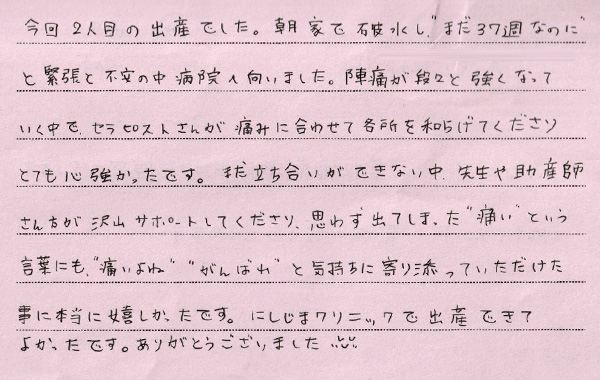 今回 2人目の出産でした。朝 家で破水し、"まだ37週なのに"
と緊張と不安の中 病院へ向いました。陣痛が段々と強くなって
いく中で、セラピストさんが痛みに合わせて各所を和らげてくださり
とても心強かったです。まだ立ち合いができない中、先生や助産師
さん方が沢山サポートしてくださり、思わず出てしまった"痛い"という
言葉にも、"痛いよね" "がんばれ"と気持ちに寄り添っていただけた
事に本当に嬉しかったです。にしじまクリニックで出産できて
よかったです。ありがとうございました